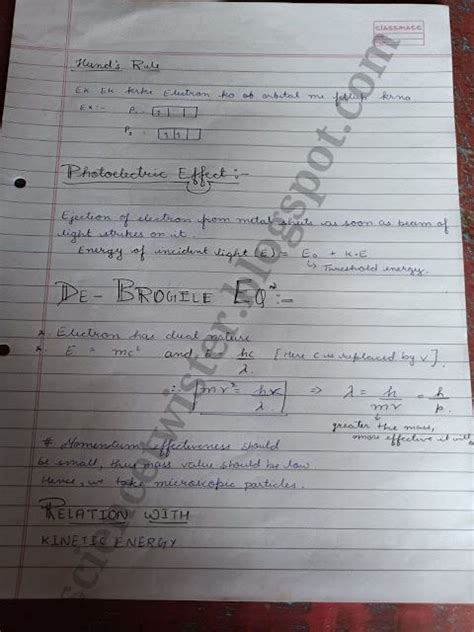 CLASSMATE
Hund's Rule
Ek Ek krke Electron ko ob orbital me krna
Ex:- P₁
P₂
Photoelectric Effect:-
Ejection of electron from metal as soon as beam of
light strikes on it.
Energy of incident light (E) = E₀ + K.E
↳ Threshold energy.
DE- BROGILE EQⁿ:-
* Electron has dual nature
* E = mc² and hc/λ [Here c is replaced by v]
∴ mv² = hv/λ ⇒ λ = h/mv = h/p.
greater the mass,
more effective it will
# Momentum effectiveness should
be small, thus mass value should be low
Hence, we take microscopic particles.
RELATION WITH
KINETIC ENERGY
sciencetwister.blogspot.com